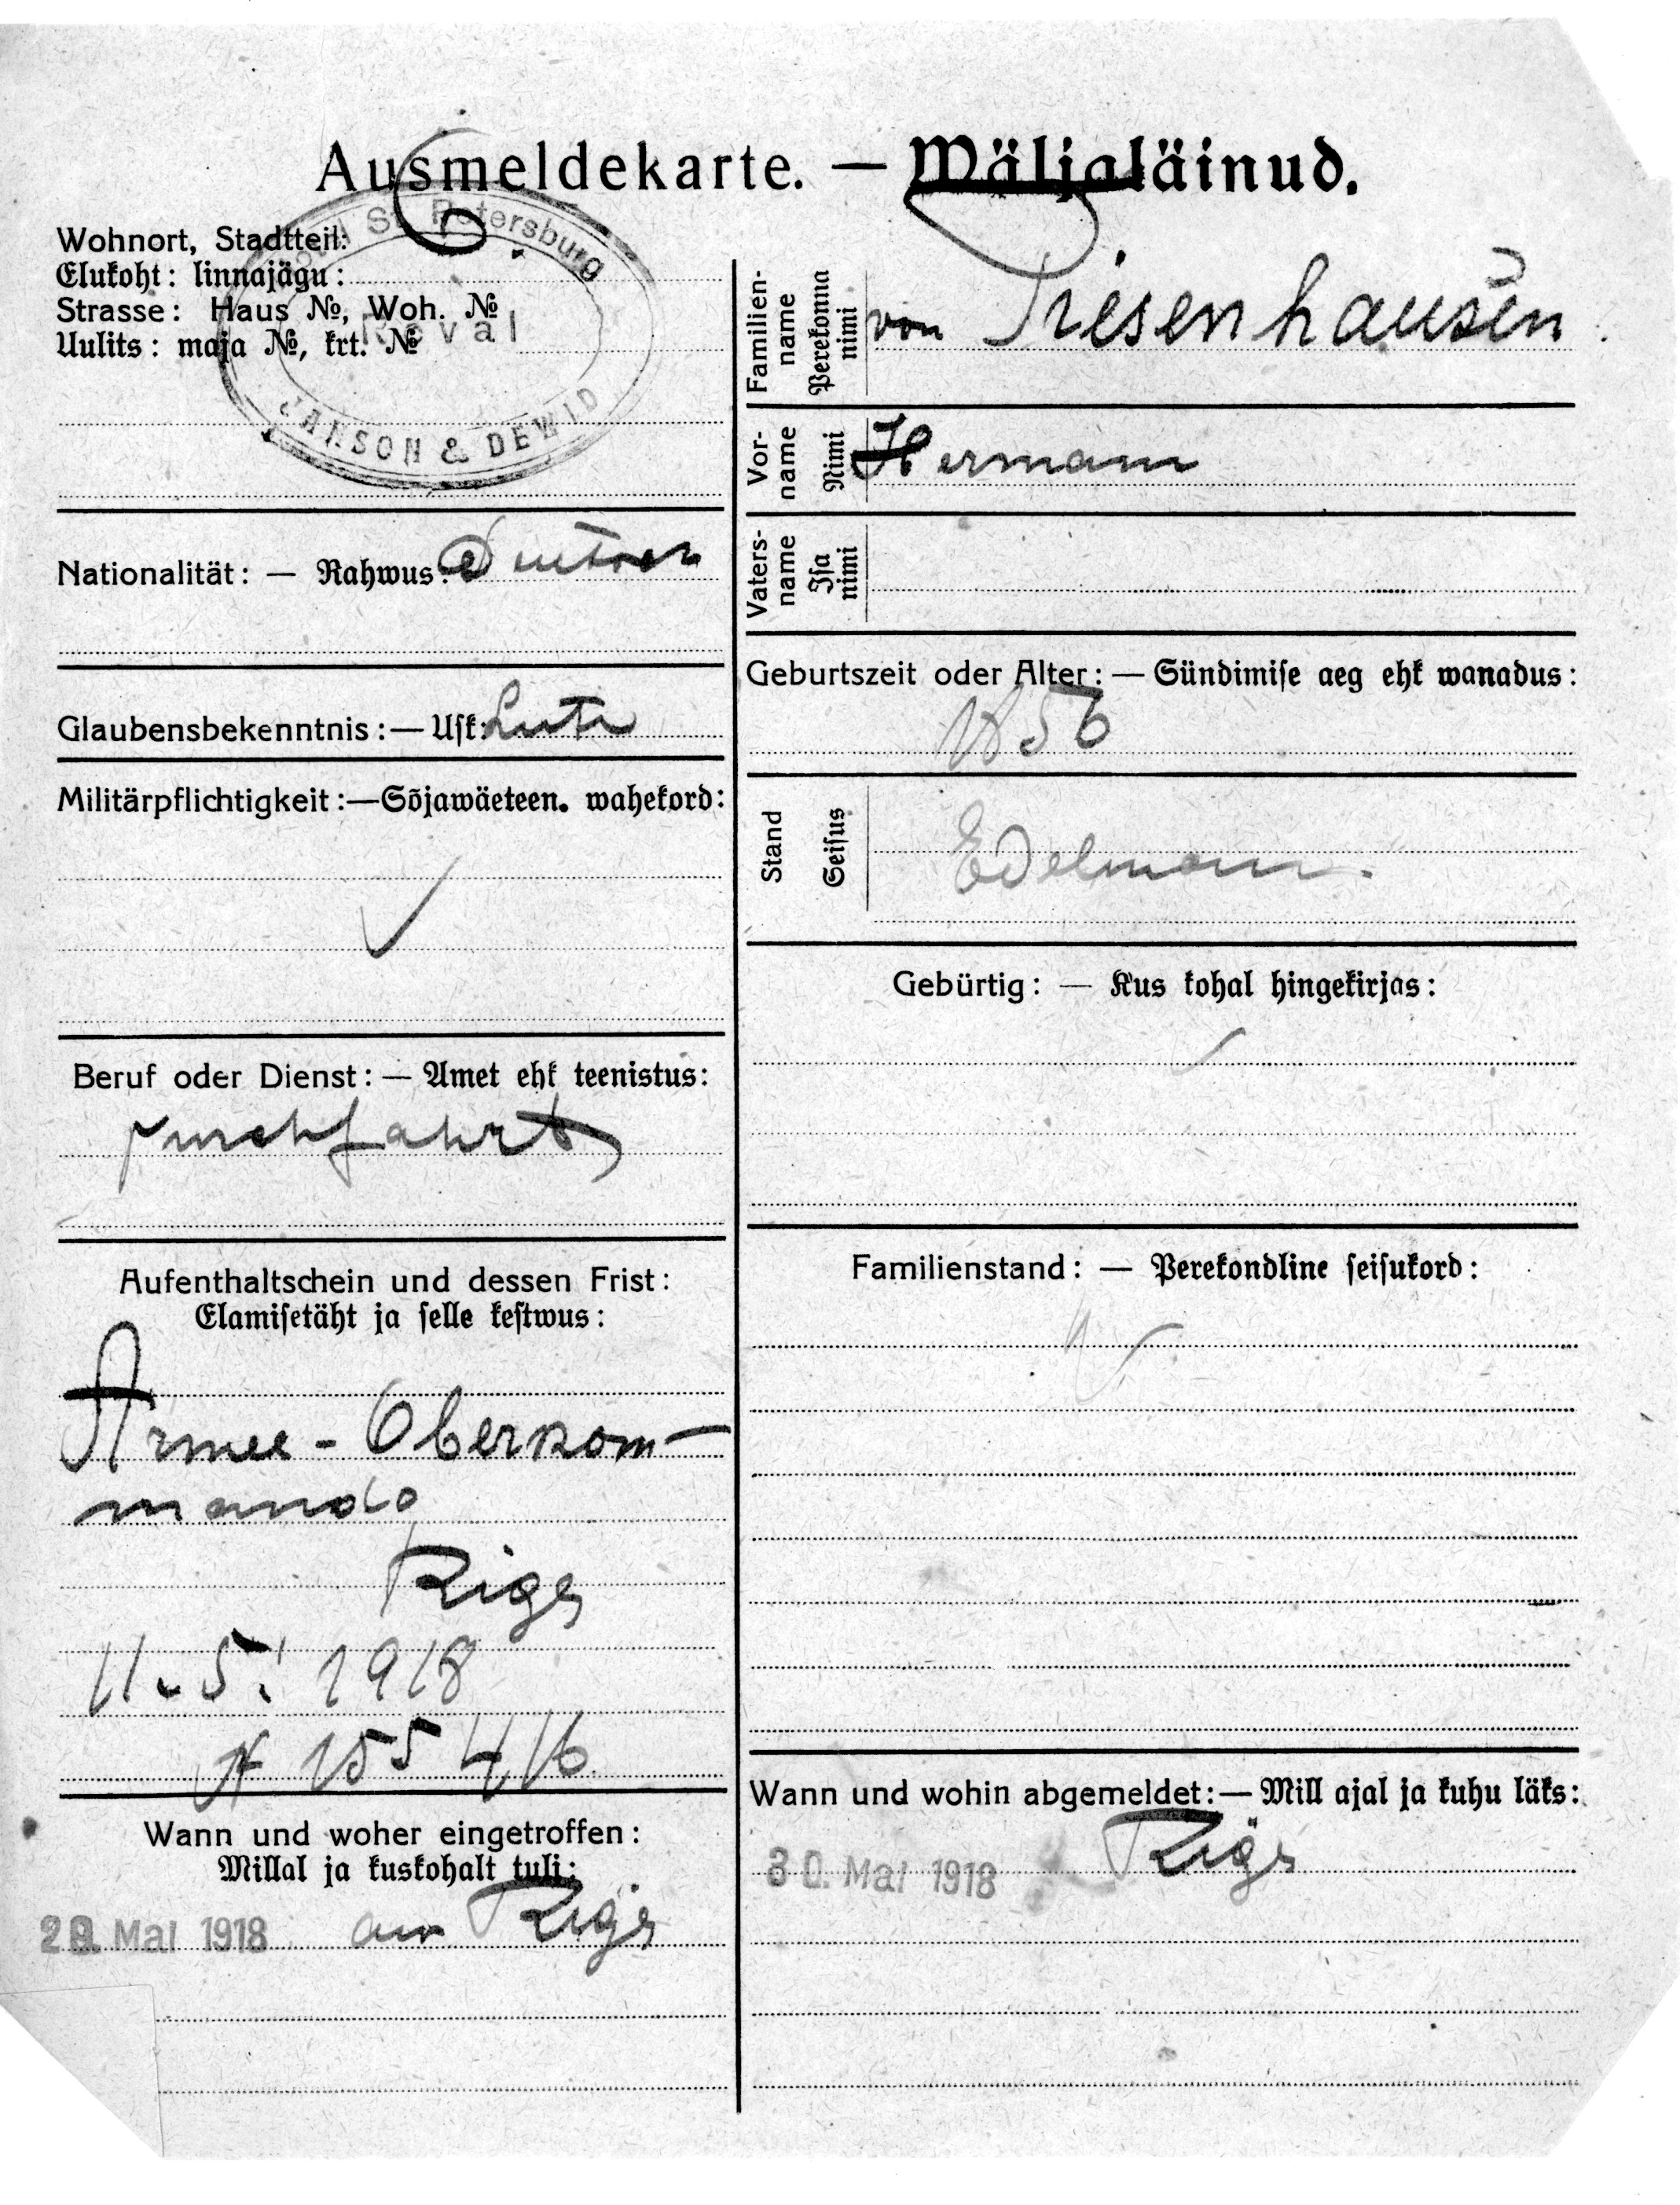 Ausmeldekarte. — Wäljaläinud.
Hotel St. Petersburg
Reval
JANSON & DEWID
Wohnort, Stadtteil:
Elukoht: linnajägu:
Strasse: Haus №, Woh. №
Uulits: maja №, krt. №
Nationalität: — Rahwus:
Glaubensbekenntnis: — Usk: Luth
Militärpflichtigkeit: — Sõjawäeteen. wahekord:
Beruf oder Dienst: — Amet ehk teenistus:
Durchfahrt
Aufenthaltschein und dessen Frist:
Elamisetäht ja selle kestwus:
Armee-Oberkom-
mando
Riga
11. 5. 1918
№ 155416
Wann und woher eingetroffen:
Millal ja kuskohalt tuli:
29. Mai 1918 aus Riga
Familien-
name
Perekonna
nimi
von Tiesenhausen
Vor-
name
Nimi
Hermann
Vaters-
name
Isa
nimi
Geburtszeit oder Alter: — Sündimise aeg ehk wanadus:
1856
Stand
Seisus
Edelmann.
Gebürtig: — Kus kohal hingekirjas:
Familienstand: — Perekondline seisukord:
Wann und wohin abgemeldet: — Mill ajal ja kuhu läks:
30. Mai 1918 Riga